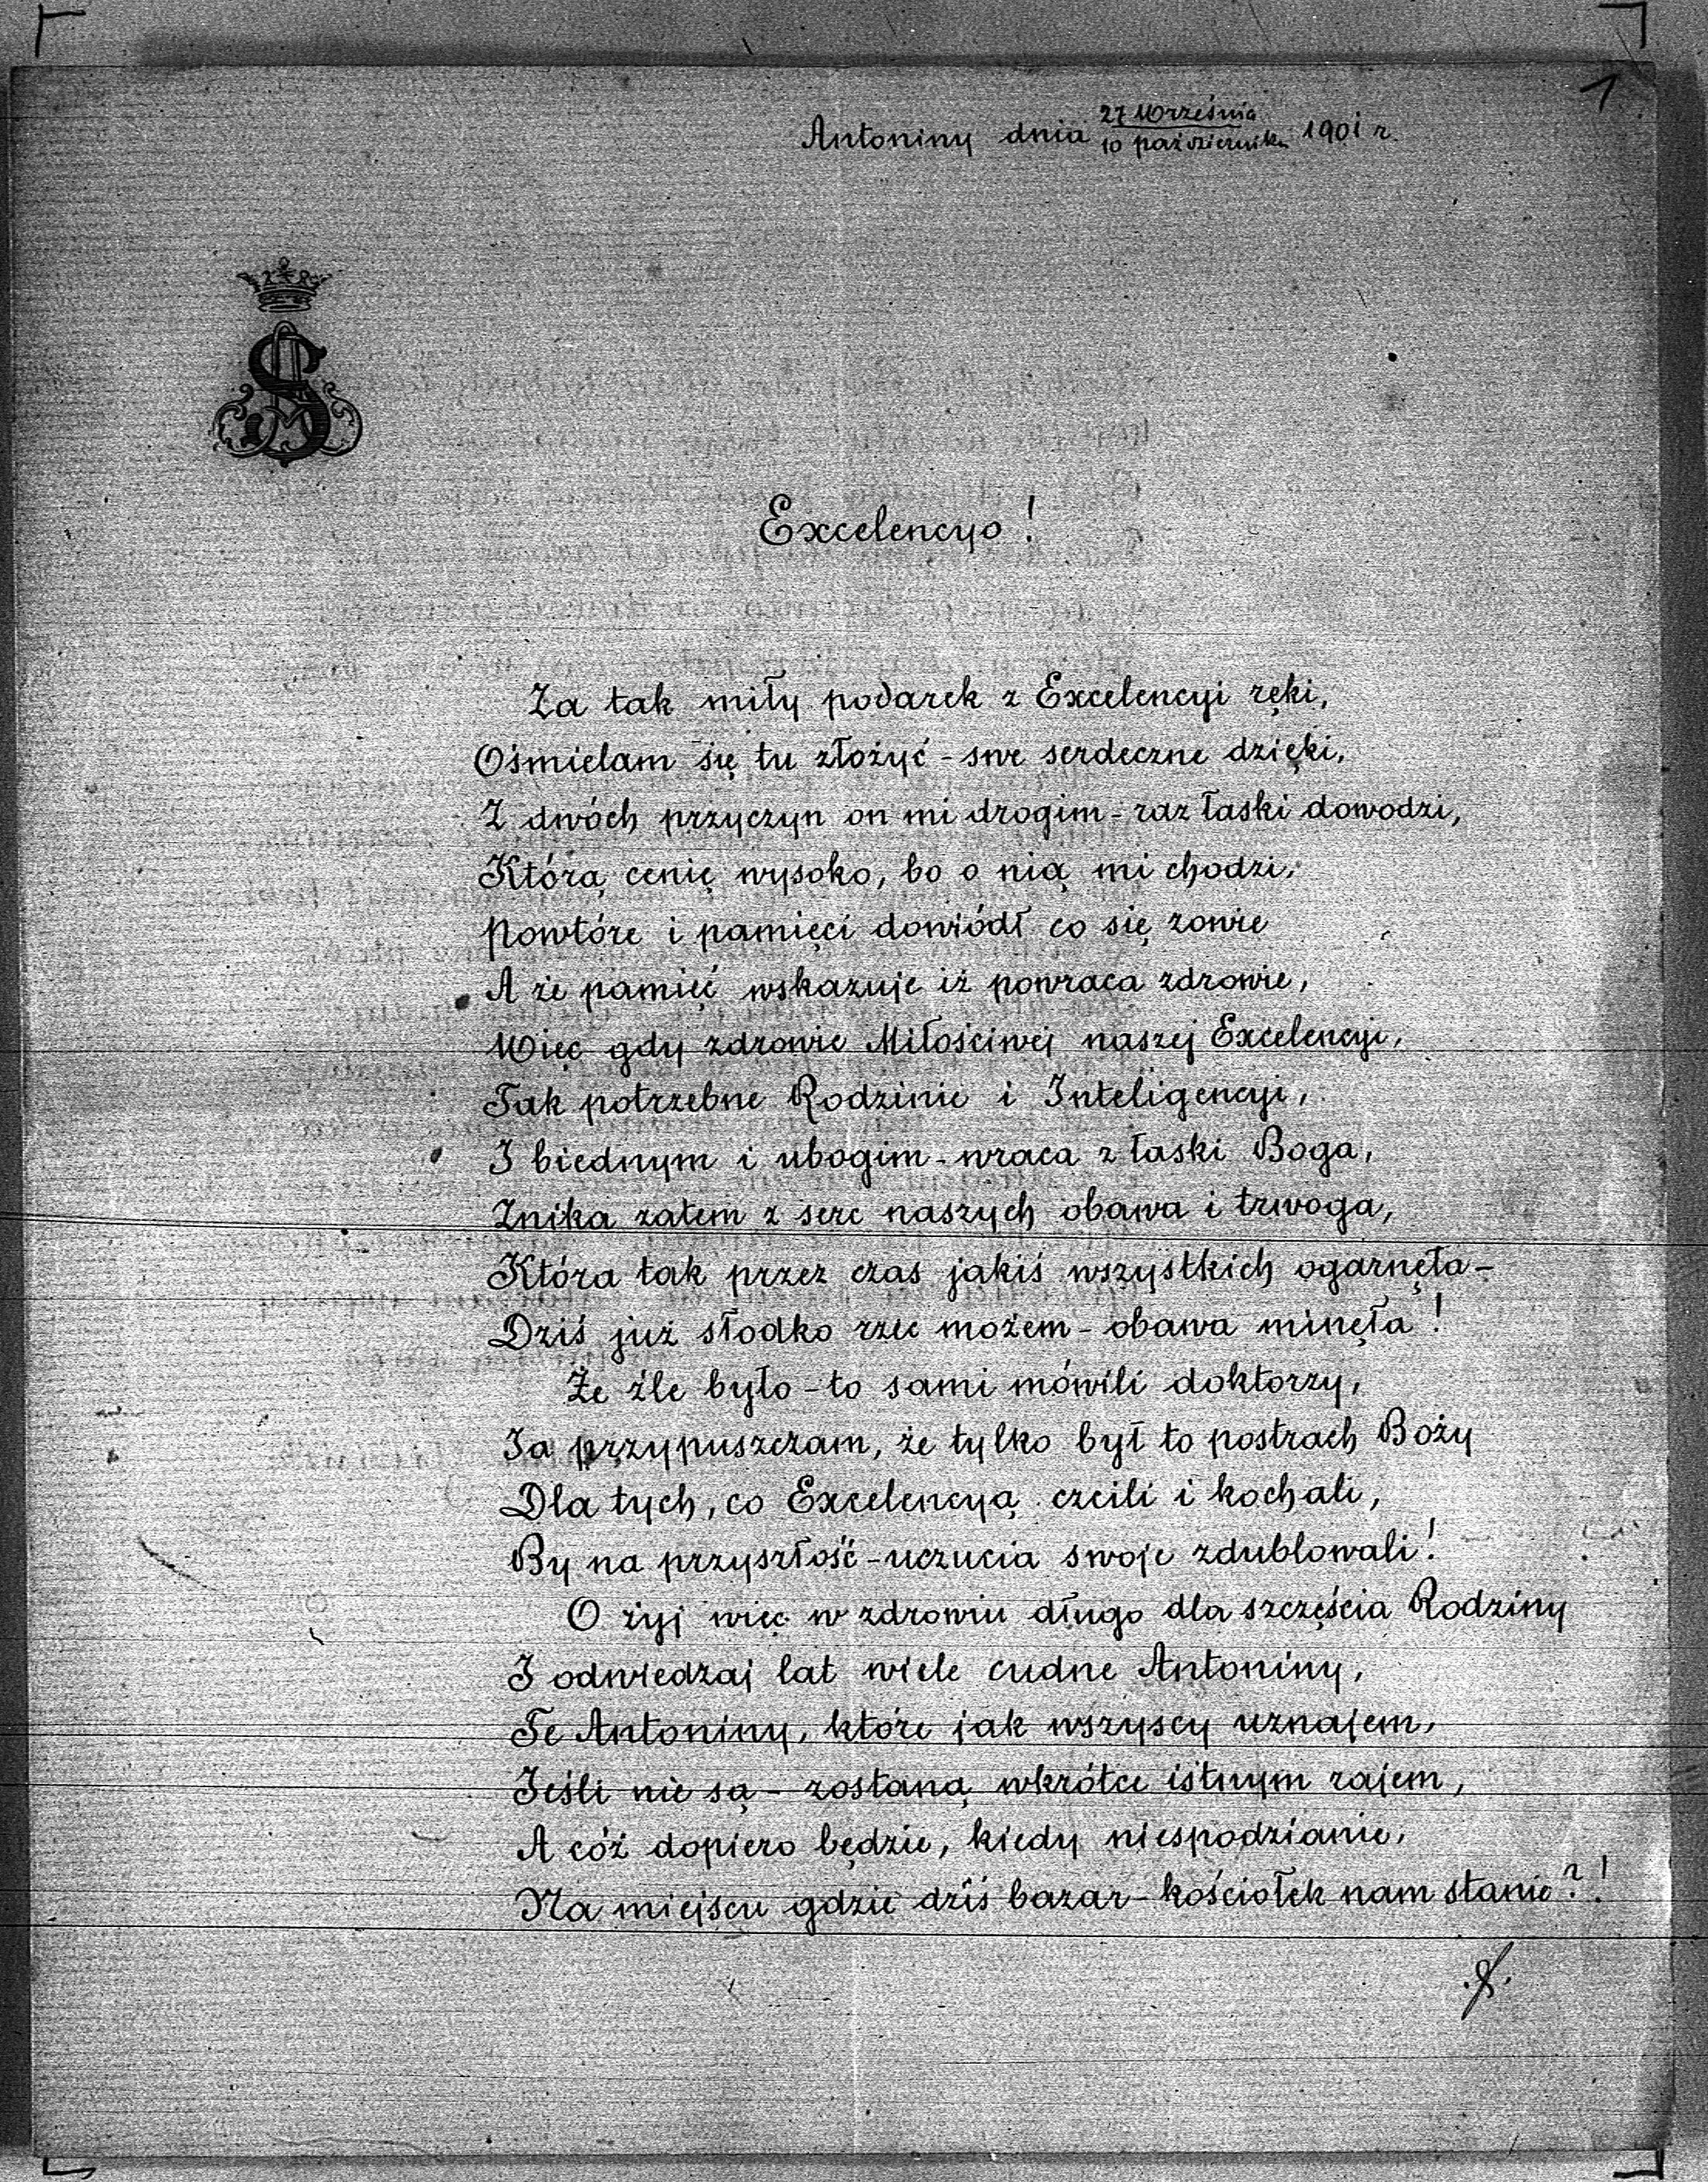 1
Antoniny dnia 27 Września / 10 października 1901 r.
Excelencyo!
Za tak miły podarek z Excelencyi ręki,
Ośmielam się tu złożyć - swe serdeczne dzięki,
Z dwóch przyczyn on mi drogim - raz łaski dowodzi,
Którą cenię wysoko, bo o nią mi chodzi,
Powtóre i pamięci dowiódł co się zowie
A że pamięć wskazuje iż powraca zdrowie,
Więc gdy zdrowie Miłościwej naszej Excelencyi,
Tak potrzebne Rodzinie i Inteligencyi,
I biednym i ubogim - wraca z łaski Boga,
Znika zatem z serc naszych obawa i trwoga,
Która tak przez czas jakiś wszystkich ogarnęła -
Dziś już słodko rzec możem - obawa minęła!
Że źle było - to sami mówili doktorzy,
Ja przypuszczam, że tylko był to postrach Boży
Dla tych, co Excelencyą czcili i kochali,
By na przyszłość - uczucia swoje zdublowali!
O żyj więc w zdrowiu długo dla szczęścia Rodziny
I odwiedzaj lat wiele cudne Antoniny,
Te Antoniny, które jak wszyscy uznajem,
Jeśli nie są - zostaną wkrótce istnym rajem,
A cóż dopiero będzie, kiedy niespodzianie,
Na miejscu gdzie dziś bazar - kościołek nam stanie?!